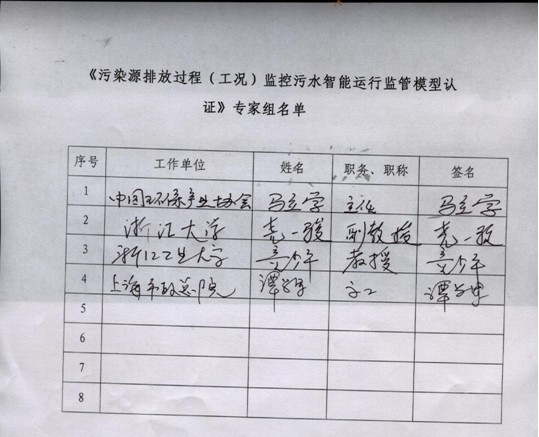 《污染源排放过程（工况）监控污水智能运行监管模型认
证》专家组名单
序号 工作单位 姓名 职务、职称 签名
1 中国环保产业协会 马立学 主任 马立学
2 浙江大学 一骏 副教授 一骏
3 浙江工业大学 少华 教授 少华
4 上海市政总院 谭学军 高工 谭学军
5
6
7
8